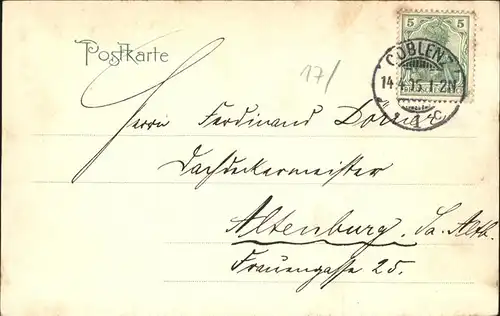 Postkarte
5 5
COBLENZ
14.4.05.1-2N
* 1 c
17/
Herrn Ferdinand
Dachdeckermeister
Altenburg. Sa. Altb.
Frauengasse 25.